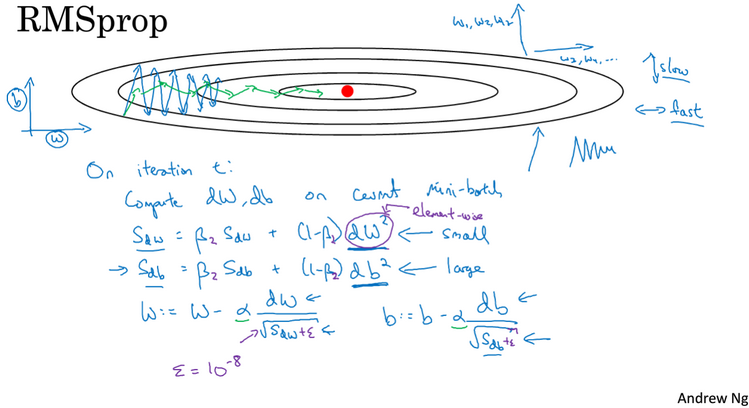 RMSprop
w₁, w₂, w₂
w₃, w₄, ...
slow
fast
b
w
On iteration t:
Compute dW, db on current mini-batch
element-wise
S_dw = β₂ S_dw + (1-β₂) dW² ← small
→ S_db = β₂ S_db + (1-β₂) db² ← large
W := W - α dW / √S_dw+ε ←
b := b - α db / √S_db+ε ←
ε = 10⁻⁸
Andrew Ng